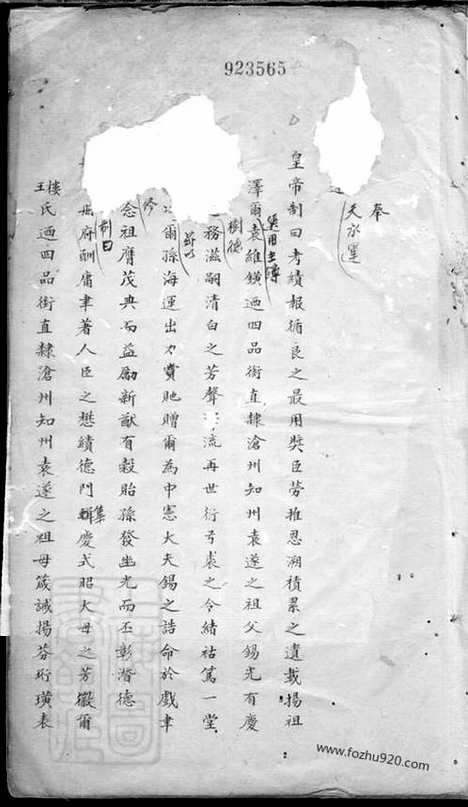 923565
奉
天承運
皇帝制曰考績報循良之最用奬臣勞推恩溯積累之遺載揚祖
澤爾袁維鐄迺四品銜直隸滄州知州袁遂之祖父錫光有慶
樹德務滋嗣清白之芳聲流再世衍弓裘之令緒祜篤一堂
茲以爾孫海運出力賞貤贈爾為中憲大夫錫之誥命於戲聿
修念祖膺茂典而益勵新猷有穀貽孫發幽光而丕彰潛德
制曰冊府酬庸聿著人臣之懋績德門輯慶式昭大母之芳徽爾
樓王氏迺四品銜直隸滄州知州袁遂之祖母箴誡揚芬珩璜表
www.fozhu920.com